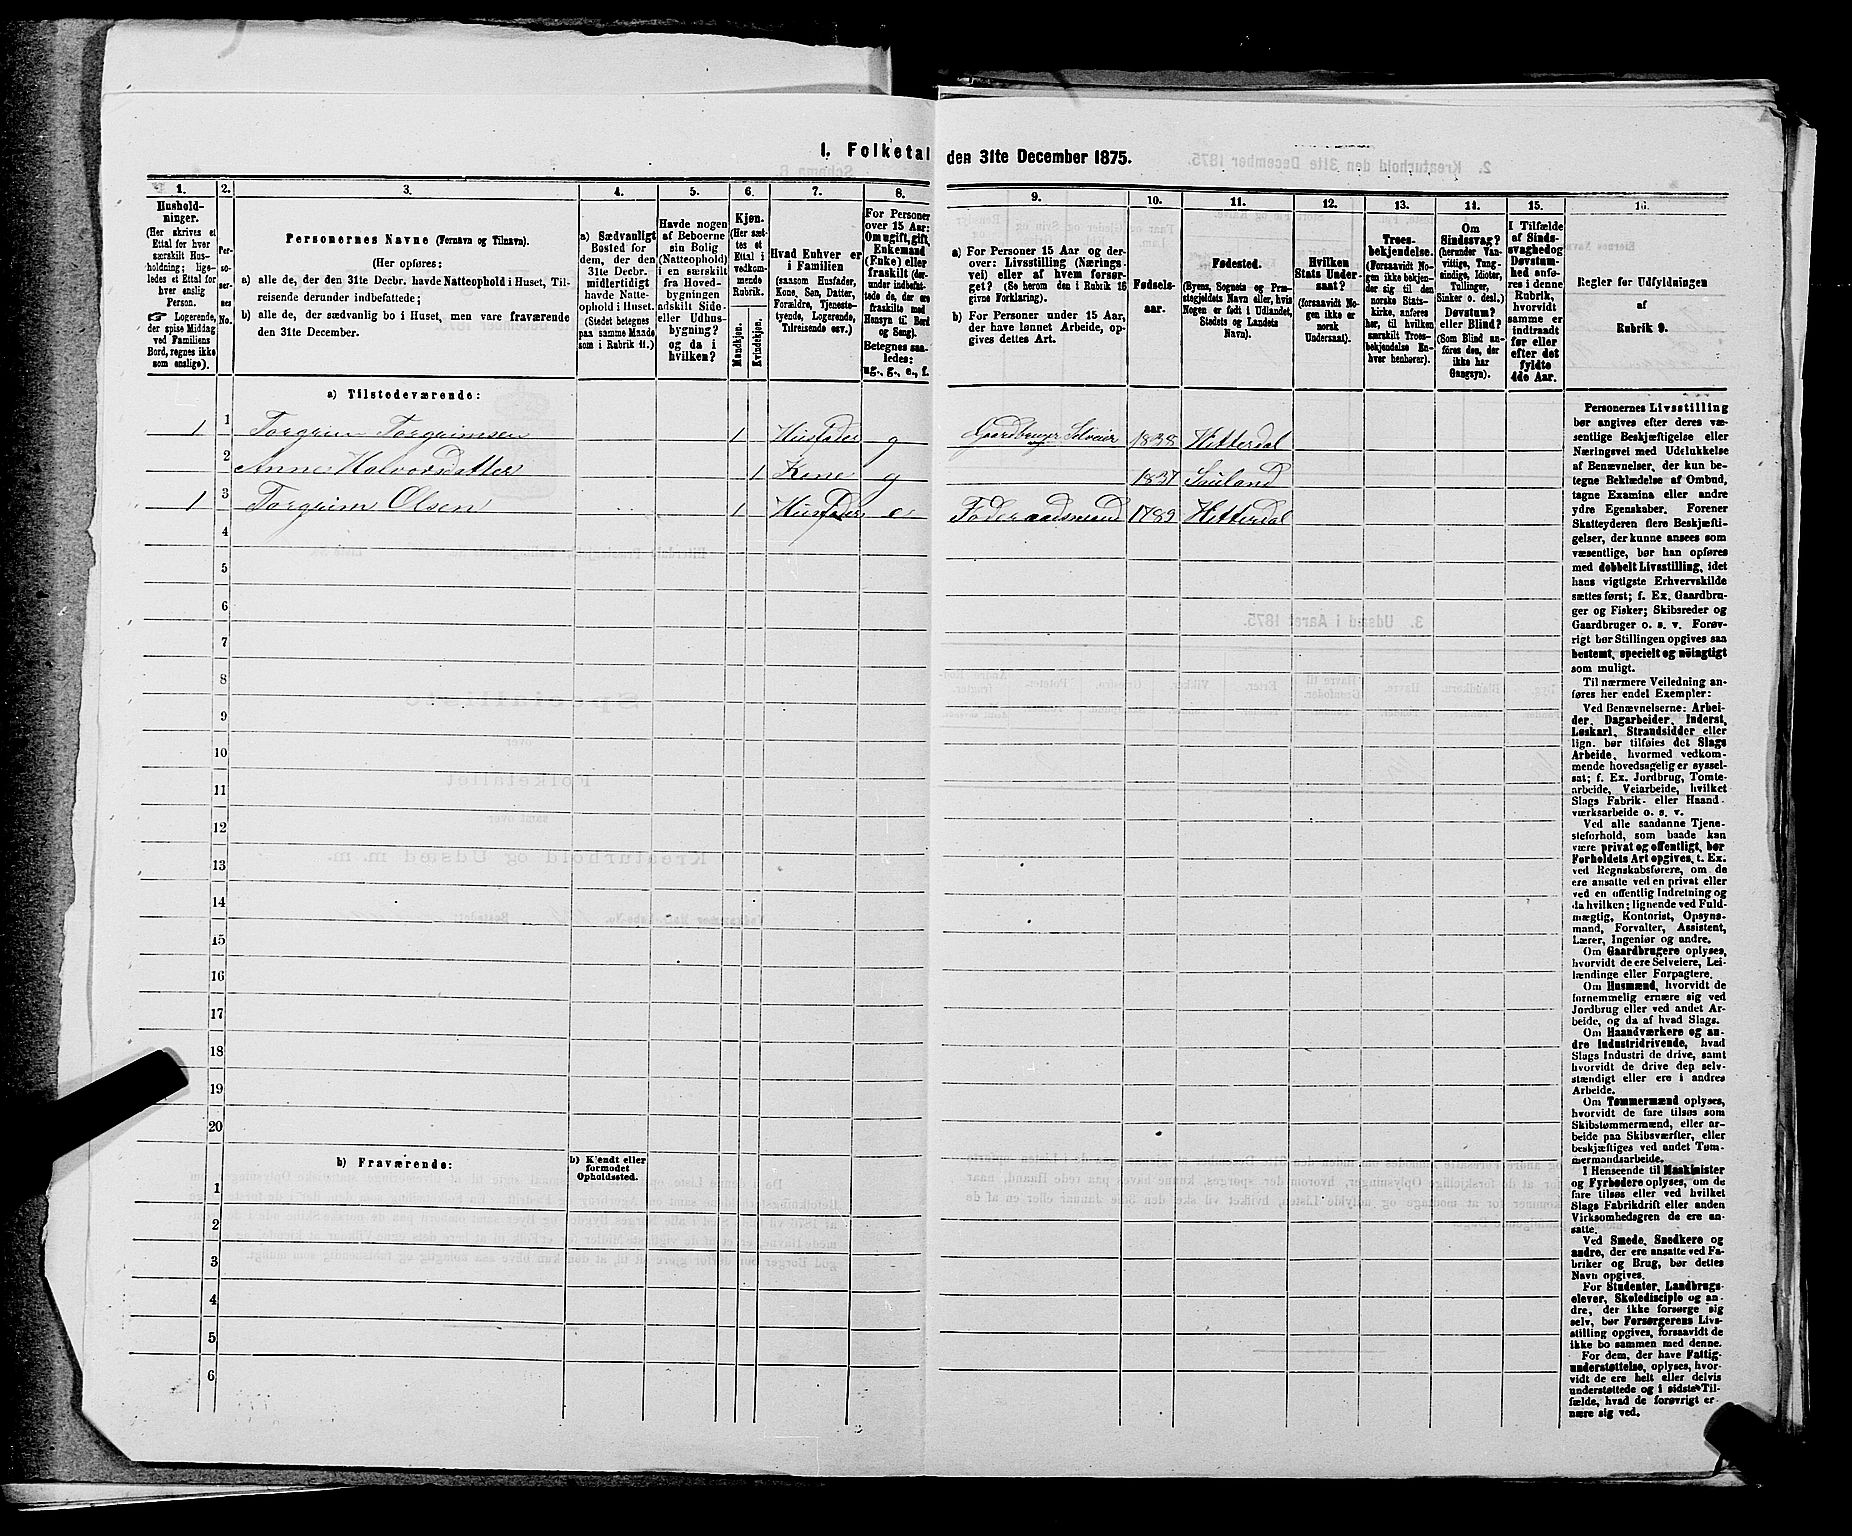 1. Folketal den 31te December 1875.
1. 2. 3. 4. 5. 6. 7. 8. 9. 10. 11. 12. 13. 14. 15. 16.
Hushold-
ninger.
(Her skrives et
Ettal for hver
særskilt Hus-
holdning; lige-
ledes et Ettal for
hver enslig
Person.
☞ Logerende,
der spise Middag
ved Familiens
Bord, regnes ikke
som enslige).
Per-
so-
ner-
nes
No.
Personernes Navne (Fornavn og Tilnavn).
(Her opføres:
a) alle de, der den 31te Decbr. havde Natteophold i Huset, Til-
reisende derunder indbefattede;
b) alle de, der sædvanlig bo i Huset, men vare fraværende
den 31te December.
a) Sædvanligt
Bosted for
dem, der den
31te Decbr.
midlertidigt
havde Natte-
ophold i Huset.
(Stedet betegnes
paa samme Maade
som i Rubrik 11.)
Havde nogen
af Beboerne
sin Bolig
(Natteophold)
i en særskilt
fra Hoved-
bygningen
adskilt Side-
eller Udhus-
bygning?
og da i
hvilken?
Kjøn.
(Her sæt-
tes et
Ettal i
vedkom-
mende
Rubrik.
Mandkjøn.
Kvindekjøn.
Hvad Enhver er
i Familien
(saasom Husfader,
Kone, Søn, Datter,
Forældre, Tjeneste-
tyende, Logerende,
Tilreisende osv.)
For Personer
over 15 Aar:
Om ugift, gift,
Enkemand
(Enke) eller
fraskilt (der-
under indbefat-
tede de, der ere
fraskilte med
Hensyn til Bord
og Seng).
Betegnes saa-
ledes:
ug., g., e., f.
a) For Personer 15 Aar og der-
over: Livsstilling (Nærings-
vei) eller af hvem forsør-
get? (Se herom den i Rubrik 16
givne Forklaring).
b) For Personer under 15 Aar,
der have lønnet Arbeide, op-
gives dettes Art.
Fødsels-
aar.
Fødested.
(Byens, Sognets og Præ-
stegjeldets Navn eller, hvis
Nogen er født i Udlandet,
Stedets og Landets
Navn).
Hvilken
Stats Under-
saat?
(forsaavidt No-
gen ikke er
norsk
Undersaat).
Troes-
bekjendelse.
(Forsaavidt No-
gen ikke bekjen-
der sig til den
norske Stats-
kirke, anføres
her, til hvilken
særskilt Troes-
bekjendelse En-
hver henhører).
Om
Sindssvag?
(herunder Van-
vittige, Tung-
sindige, Idioter,
Tullinger,
Sinker o. desl.)
Døvstum?
eller Blind?
(Som Blind an-
føres den, der
ikke har
Gangsyn).
I Tilfælde
af Sinds-
svaghed og
Døvstum-
hed anfø-
res i denne
Rubrik,
hvorvidt
samme er
indtraadt
før eller
efter det
fyldte
4de Aar.
Regler for Udfyldningen
af
Rubrik 9.
a) Tilstedeværende:
1 1 Torgrim Torgrimsen 1 Husfader g Gaardbruger Selveier 1838 Hitterdal
2 Anne Halvorsdatter 1 Kone g 1837 Sauland
1 3 Torgrim Olsen 1 Husfader e Føderaadsmand 1789 Hitterdal
4
5
6
7
8
9
10
11
12
13
14
15
16
17
18
19
20
b) Fraværende:
b) Kjendt eller
formodet
Opholdssted.
1
2
3
4
5
6
Personernes Livsstilling
bør angives efter deres væ-
sentlige Beskjæftigelse eller
Næringsvei med Udelukkelse
af Benævnelser, der kun be-
tegne Beklædelse af Ombud,
tagne Examina eller andre
ydre Egenskaber. Forener
Skatteyderen flere Beskjæfti-
gelser, der kunne ansees som
væsentlige, bør han opføres
med dobbelt Livsstilling, idet
hans vigtigste Erhvervskilde
sættes først; f. Ex. Gaardbru-
ger og Fisker; Skibsreder og
Gaardbruger o. s. v. Forøv-
rigt bør Stillingen opgives saa
bestemt, specielt og nøiagtigt
som muligt.
Til nærmere Veiledning an-
føres her endel Exempler:
Ved Benævnelserne: Arbei-
der, Dagarbeider, Inderst,
Løskarl, Strandsidder eller
lign. bør tilføies det Slags
Arbeide, hvormed vedkom-
mende hovedsagelig er syssel-
sat; f. Ex. Jordbrug, Tomte-
arbeide, Veiarbeide, hvilket
Slags Fabrik- eller Haand-
værksarbeide o. s. v.
Ved alle saadanne Tjene-
steforhold, som baade kan
være privat og offentligt, bør
Forholdets Art opgives, t. Ex.
ved Regnskabsførere, om de
ere ansatte ved en privat eller
ved en offentlig Indretning og
da hvilken; lignende ved Fuld-
mægtig, Kontorist, Opsyns-
mand, Forvalter, Assistent,
Lærer, Ingeniør og andre.
Om Gaardbrugere oplyses,
hvorvidt de ere Selveiere, Lei-
lændinge eller Forpagtere.
Om Husmænd, hvorvidt de
fornemmelig ernære sig ved
Jordbrug eller ved andet Ar-
beide, og da af hvad Slags.
Om Haandværkere og an-
dre Industridrivende, hvad
Slags Industri de drive, samt
hvorvidt de drive den selv-
stændigt eller ere i andres
Arbeide.
Om Tømmermænd oplyses,
hvorvidt de fare tilsøs som
Skibstømmermænd, eller ar-
beide paa Skibsværfter, eller
beskjæftiges ved andet Tøm-
mermandsarbeide.
I Henseende til Maskinister
og Fyrbødere oplyses, om de
fare tilsøs eller ved hvilket
Slags Fabrikdrift eller anden
Virksomhedsgren de ere an-
satte.
Ved Smede, Snedkere og
andre, der ere ansatte ved Fa-
briker og Brug, bør dettes
Navn opgives.
For Studenter, Landbrugs-
elever, Skoledisciple og an-
dre, der ikke forsørge sig
selv, bør Forsørgerens Livs-
stilling opgives, forsaavidt de
ikke bo sammen med denne.
For dem, der have Fattig-
understøttelse, oplyses, hvor-
vidt de ere helt eller delvis
understøttede og i sidste Til-
fælde, hvad de forøvrigt er-
nære sig ved.